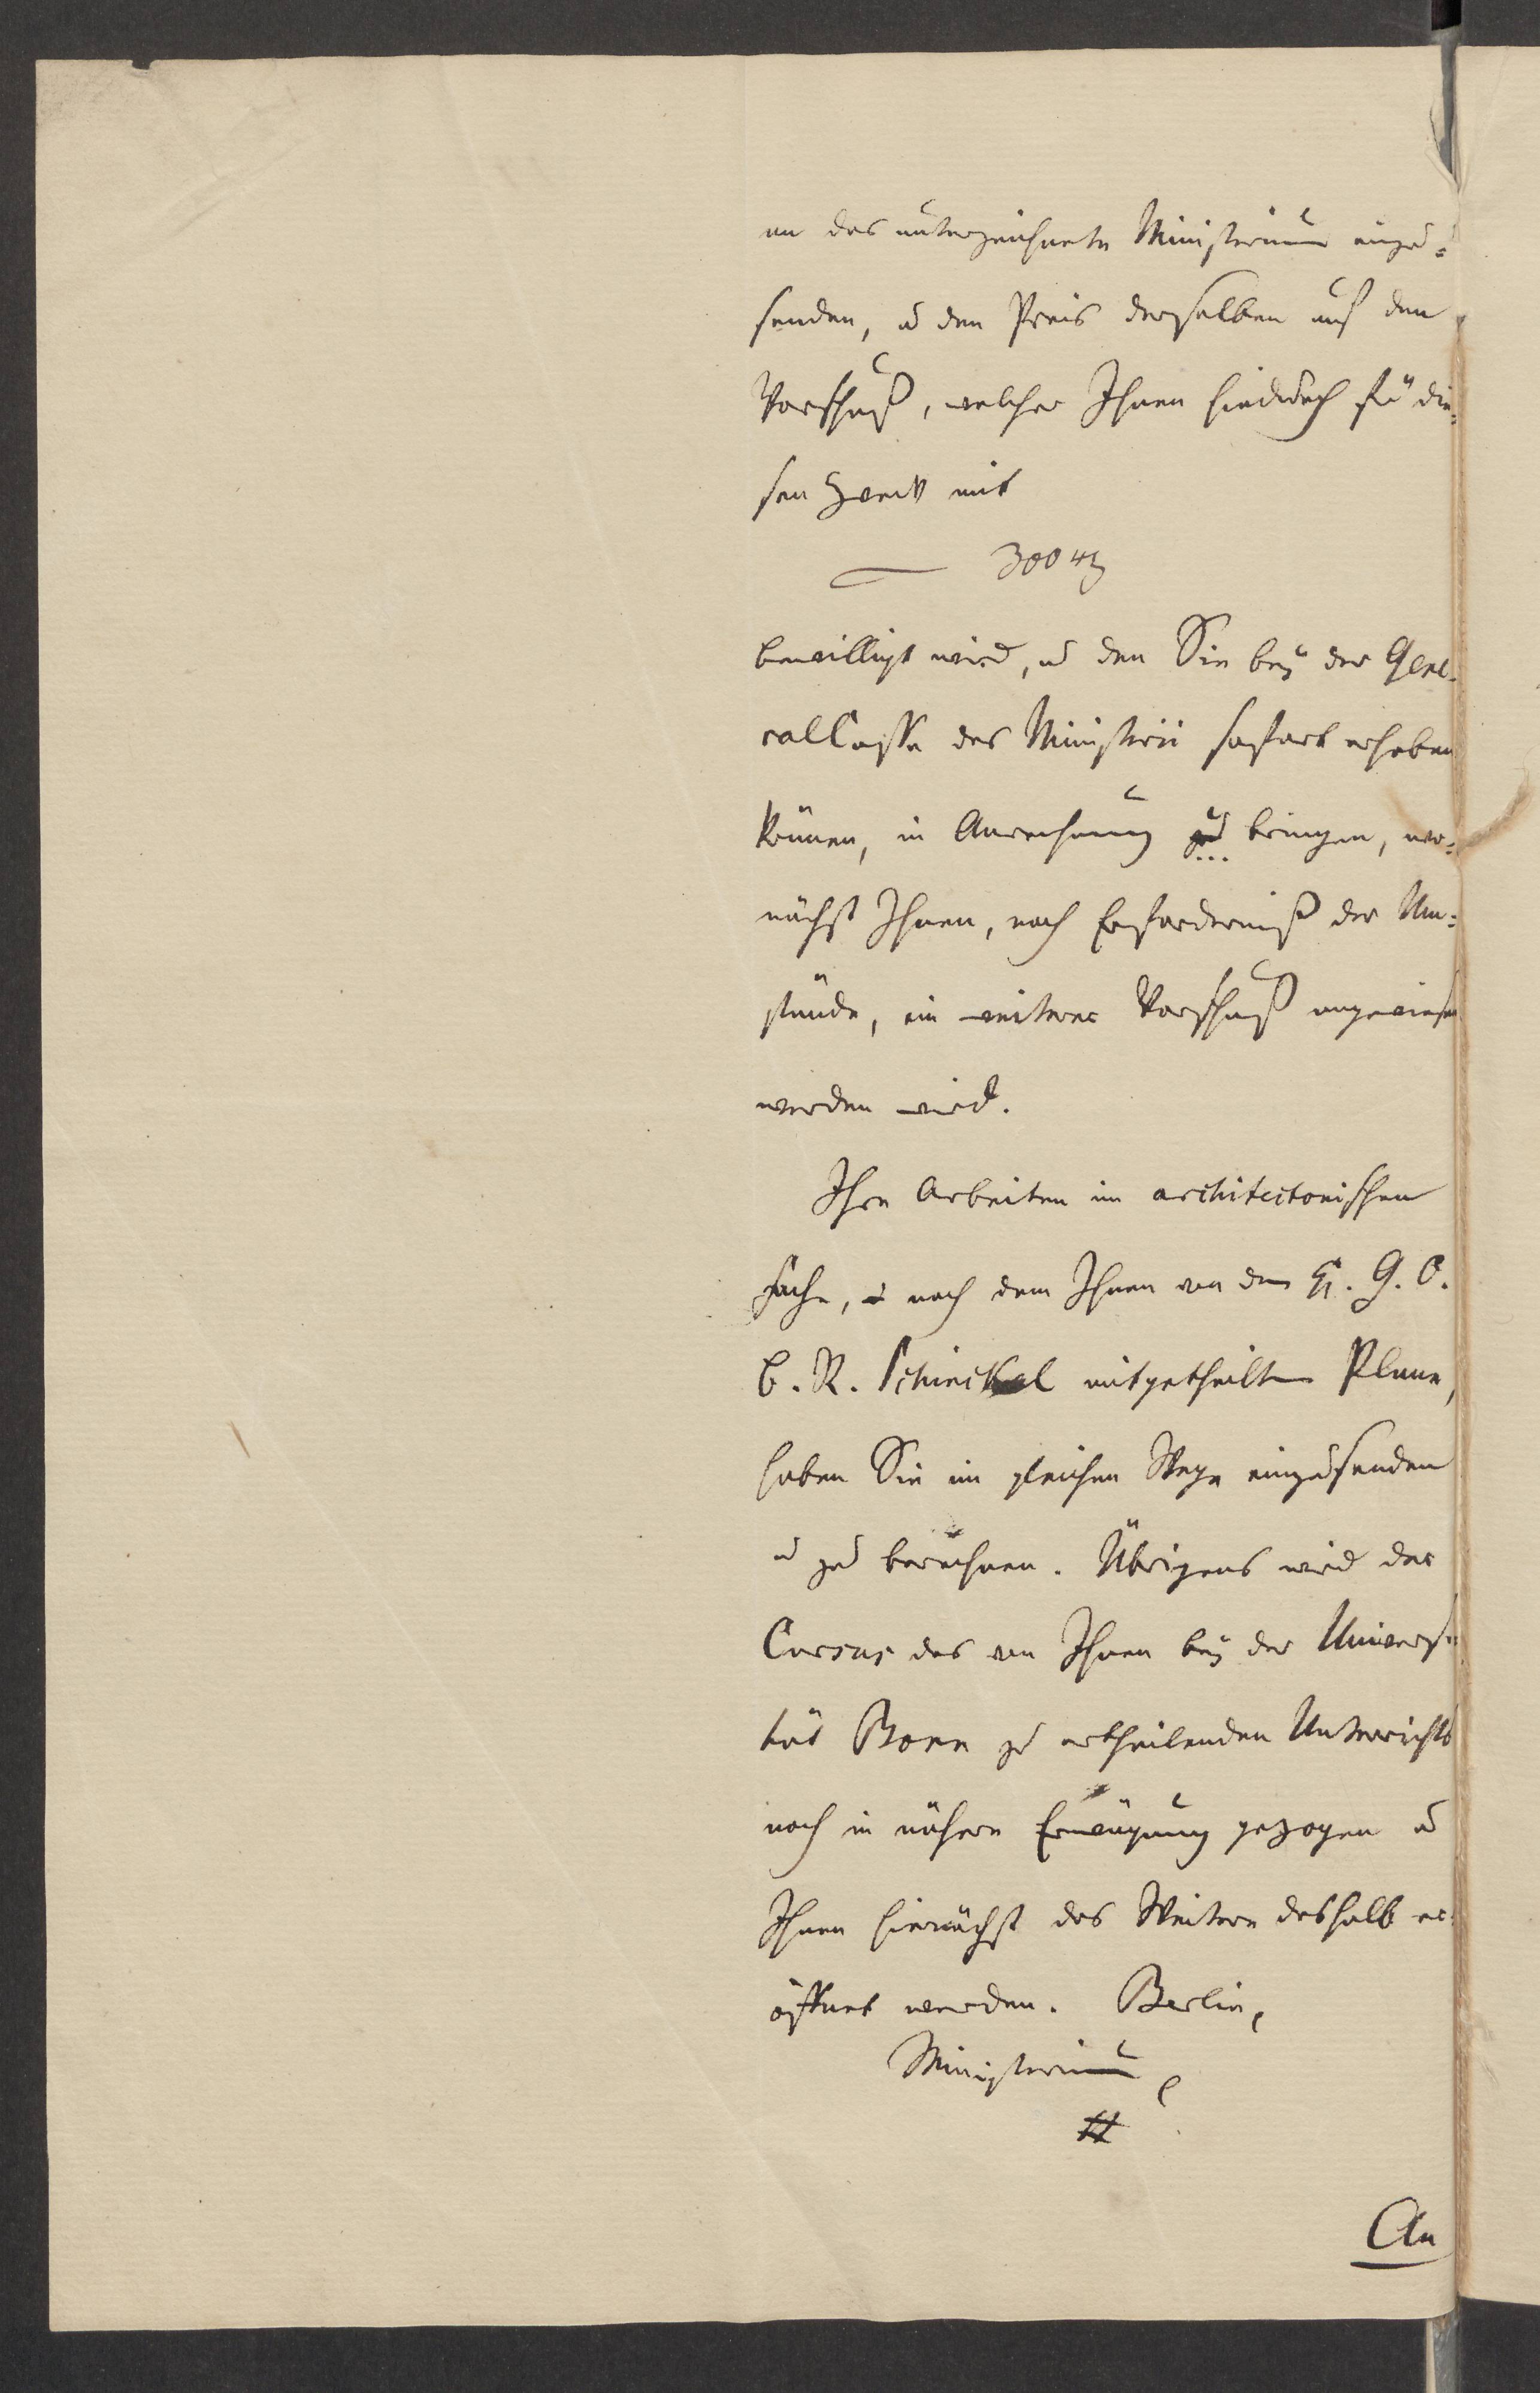 an das unterzeichnete Ministerium einzu=
senden, u den Preis derselben auf den
Vorschuß, welcher Ihnen hiedurch für die=
sen Zweck mit
300 rtl
bewilligt wird, u den Sie bey der Gene=
ralCasse des Ministerii sofort erheben
können, in Anrechnung zu bringen, wo=
nächst Ihnen, nach Erforderniß der Um=
stände, ein weiterer Vorschuß angewiesen
werden wird.
Ihre Arbeiten im architectonischen
Fache, u nach dem Ihnen von dem H. G. O.
B. R. Schinckel mitgetheilten Plane,
haben Sie im gleichen Wege einzusenden
u zu berechnen. Übrigens wird der
Cursus des von Ihnen bey der Universi=
tät Bonn zu ertheilenden Unterrichts
noch in nähere Erwägung gezogen u
Ihnen hienächst das Weitere deshalb er=
öffnet werden. Berlin,
Ministerium
An